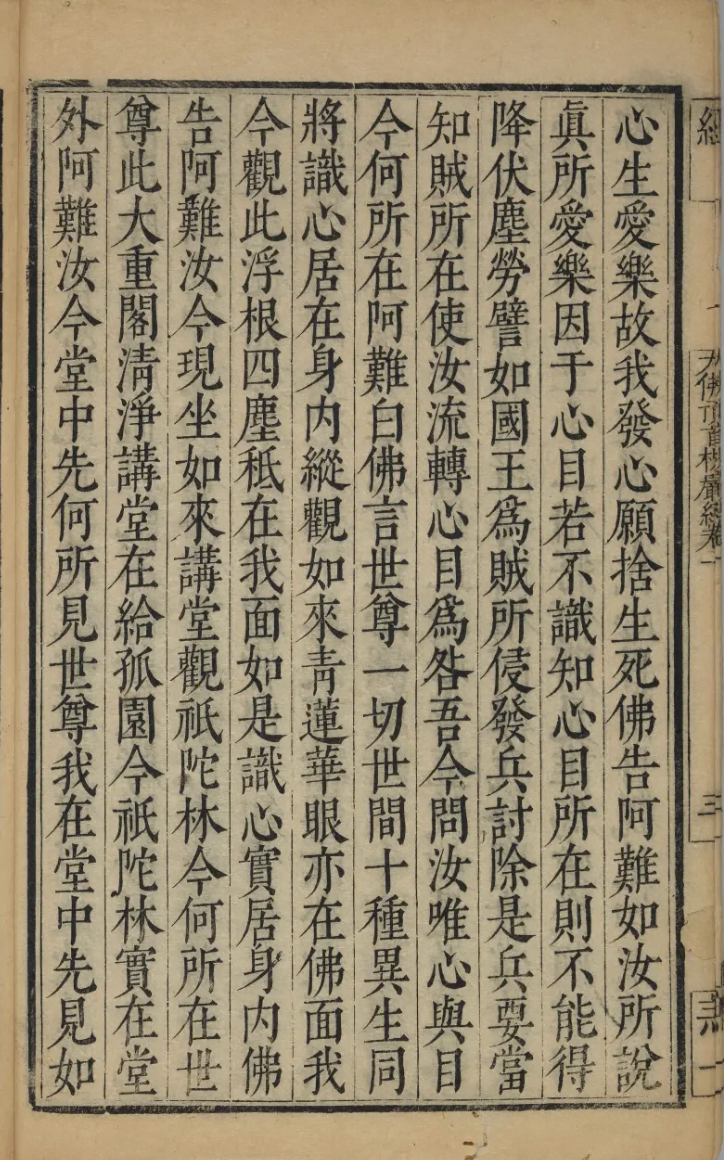 經
大佛頂首楞嚴經卷一
三
心生愛樂故我發心願捨生死佛告阿難如汝所說
眞所愛樂因于心目若不識知心目所在則不能得
降伏塵勞譬如國王爲賊所侵發兵討除是兵要當
知賊所在使汝流轉心目爲咎吾今問汝唯心與目
今何所在阿難白佛言世尊一切世間十種異生同
將識心居在身內縱觀如來青蓮華眼亦在佛面我
今觀此浮根四塵秪在我面如是識心實居身內佛
告阿難汝今現坐如來講堂觀祇陀林今何所在世
尊此大重閣淸淨講堂在給孤園今祇陀林實在堂
外阿難汝今堂中先何所見世尊我在堂中先見如